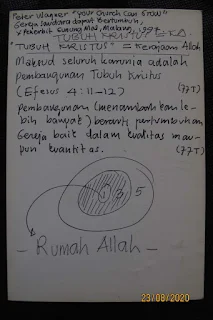 Peter Wagner "Your Church Can Grow"
Gereja Saudara dapat Bertumbuh,
Penerbit Gandum Mas, Malang, 1997
TUBUH KRISTUS = K.A.
"TUBUH KRISTUS" = Kerajaan Allah
Maksud seluruh karunia adalah
pembangunan Tubuh Kristus
(Efesus 4:11-12) (77T)
Pembangunan (menambahkan le-
bih banyak) berarti pertumbuhan
Gereja baik dalam kualitas mau-
pun kuantitas. (77T)
1 3 5
- Rumah Allah -
23/08/2020